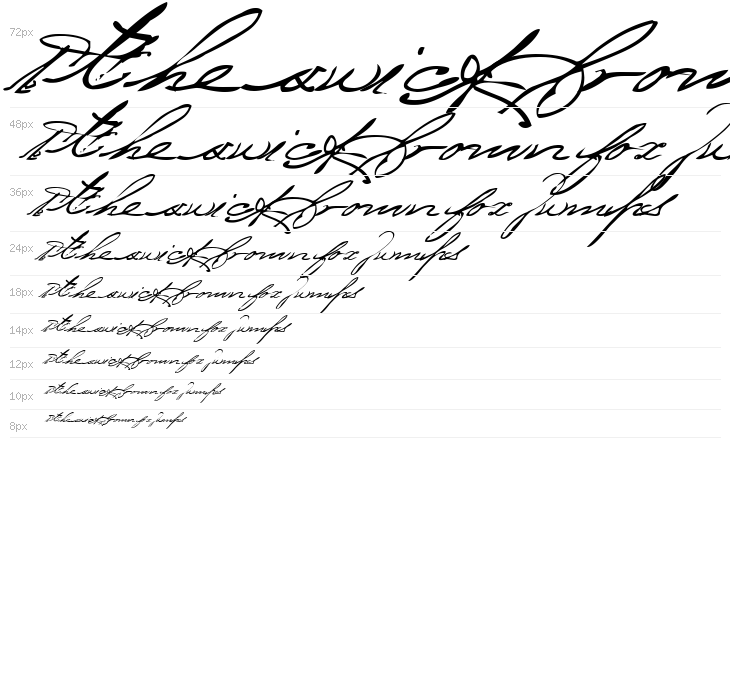 72px the quick brown
48px the quick brown fox ju
36px the quick brown fox jumps
24px the quick brown fox jumps
18px the quick brown fox jumps
14px the quick brown fox jumps
12px the quick brown fox jumps
10px the quick brown fox jumps
8px the quick brown fox jumps